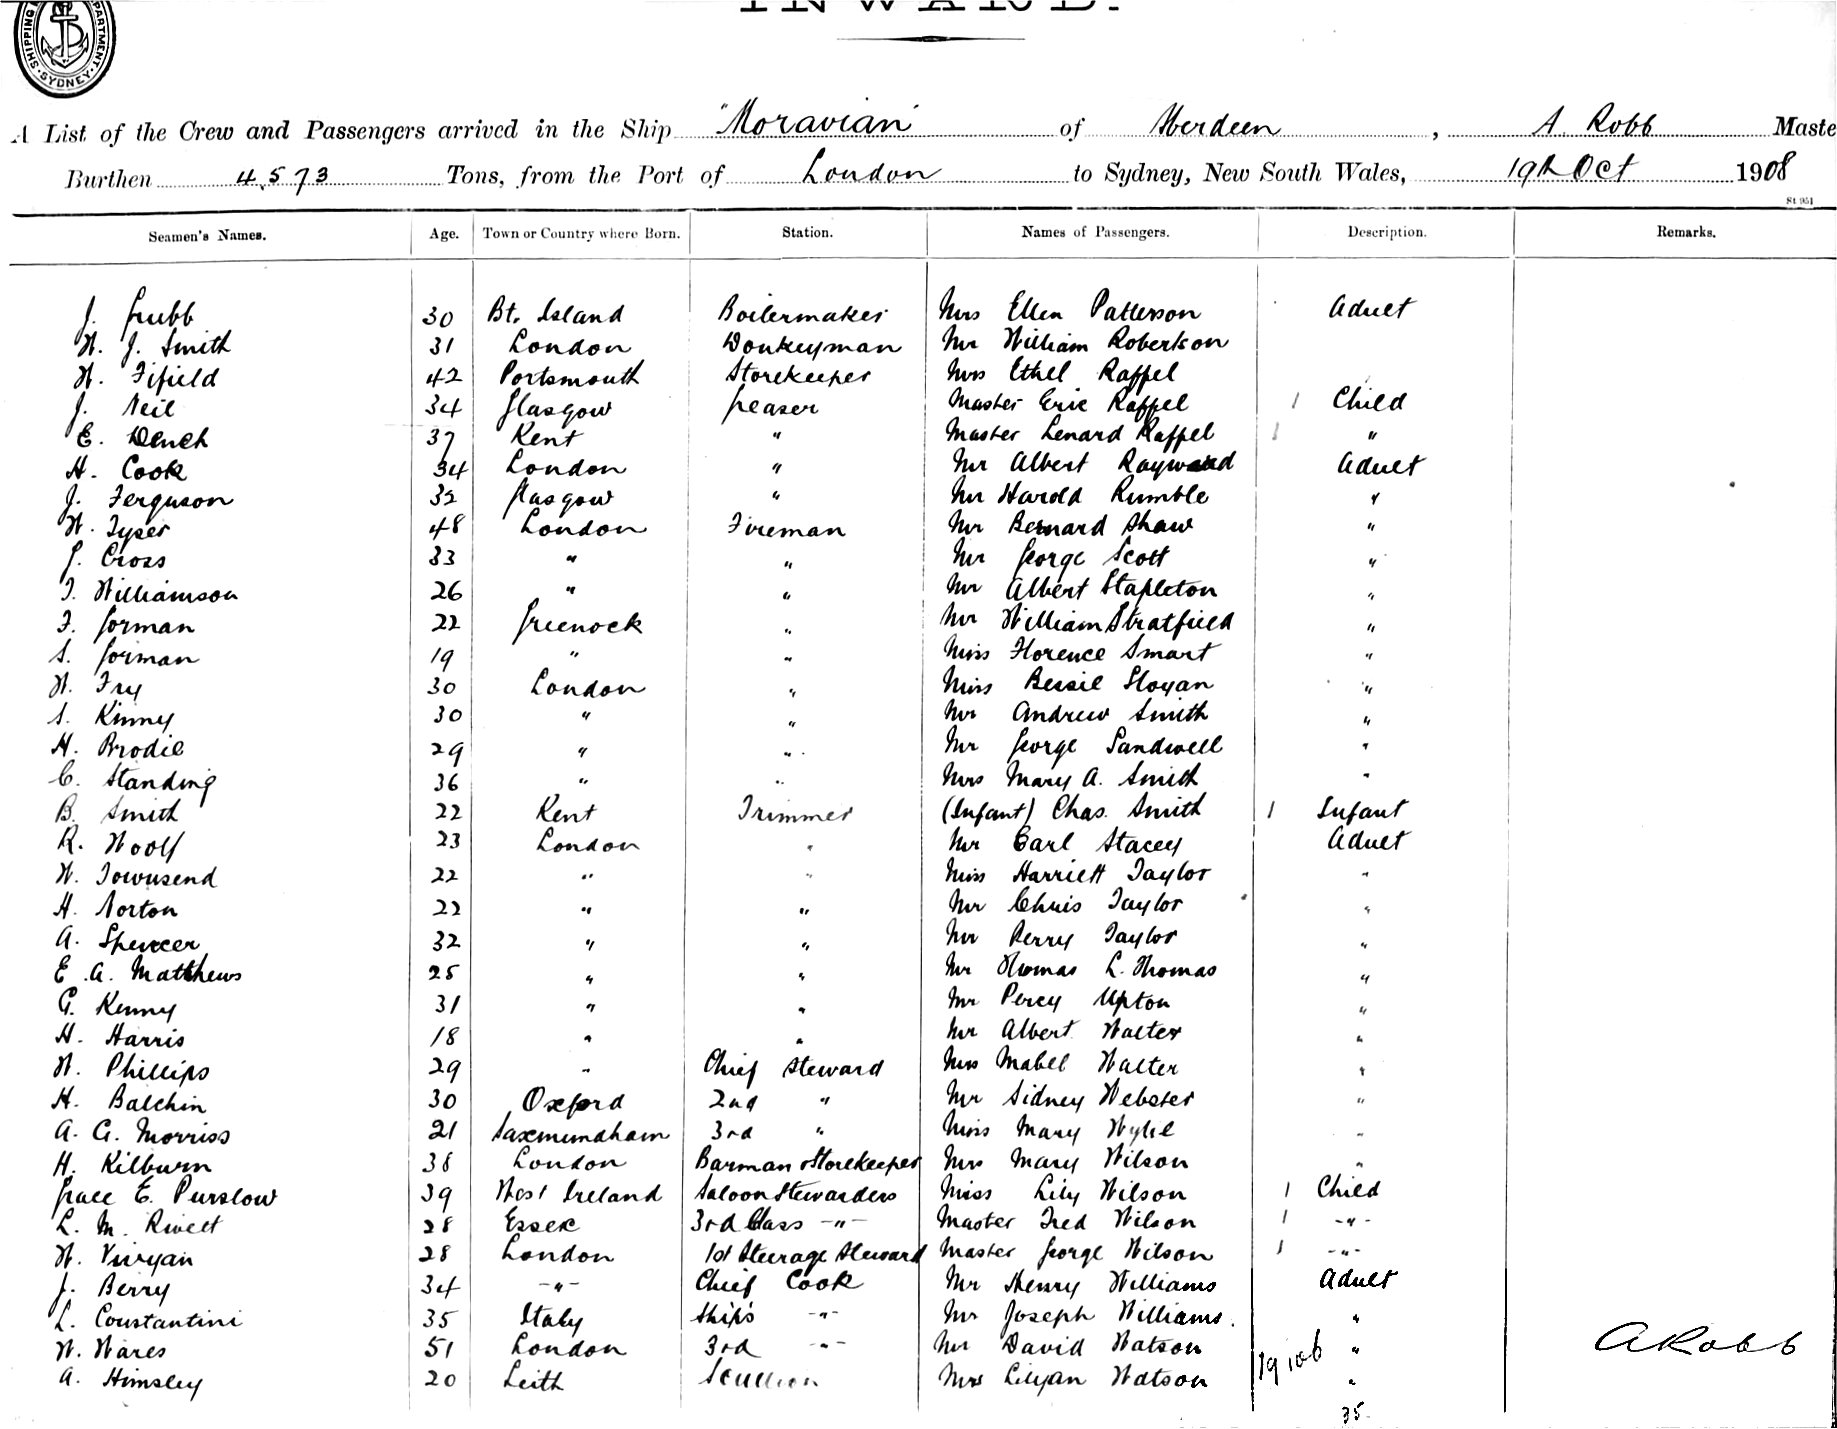 INWARD.
SHIPPING DEPARTMENT. SYDNEY.
A List of the Crew and Passengers arrived in the Ship "Moravian" of Aberdeen, A. Robb Maste
Burthen 4,573 Tons, from the Port of London to Sydney, New South Wales, 19th Oct 1908
St 951
Seamen's Names. Age. Town or Country where Born. Station. Names of Passengers. Description. Remarks.
J. Grubb 30 Bt. Island Boilermaker Mrs Ellen Patterson Adult
W. J. Smith 31 London Donkeyman Mr William Robertson
W. Fifield 42 Portsmouth Storekeeper Mrs Ethel Raffel
J. Neil 34 Glasgow Greaser Master Eric Raffel 1 Child
E. Dench 37 Kent " Master Lenard Raffel 1 "
H. Cook 34 London " Mr Albert Rayward Adult
J. Ferguson 32 Glasgow " Mr Harold Rumble "
W. Tyser 48 London Fireman Mr Bernard Shaw "
J. Cross 33 " " Mr George Scott "
T. Williamson 26 " " Mr Albert Stapleton "
F. Gorman 22 Greenock " Mr William Stratfield "
S. Gorman 19 " " Miss Florence Smart "
W. Fry 30 London " Miss Bessie Sloyan "
S. Kinny 30 " " Mr Andrew Smith "
H. Brodie 29 " " Mr George Sandwell "
C. Standing 36 " " Mrs Mary A. Smith "
B. Smith 22 Kent Trimmer (Infant) Chas. Smith 1 Infant
R. Woolf 23 London " Mr Carl Stacey Adult
W. Townsend 22 " " Miss Harriett Taylor "
H. Norton 22 " " Mr Chris Taylor "
A. Spencer 32 " " Mr Perry Taylor "
E. A. Matthews 25 " " Mr Thomas L. Thomas "
G. Kenny 31 " " Mr Percy Upton "
H. Harris 18 " " Mr Albert Walter "
W. Phillips 29 " Chief Steward Mrs Mabel Walter "
H. Balchin 30 Oxford 2nd " Mr Sidney Webster "
A. G. Morriss 21 Saxmundham 3rd " Miss Mary Wylie "
H. Kilburn 38 London Barman & Storekeeper Mrs Mary Wilson "
Grace E. Purslow 39 West Ireland Saloon Stewardess Miss Lily Wilson 1 Child
L. M. Rivett 28 Essex 3rd Class -"- Master Fred Wilson 1 -"-
W. Viryan 28 London 1st Steerage Steward Master George Wilson 1 -"-
J. Berry 34 -"- Chief Cook Mr Henry Williams Adult
L. Constantini 35 Italy Ship's -"- Mr Joseph Williams. "
W. Wares 51 London 3rd -"- Mr David Watson " ARobb
A. Himsley 20 Leith Scullion Mrs Lilyan Watson "
35.